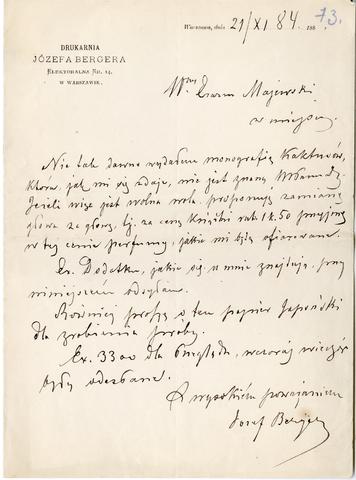 Warszawa, dnia 21/XI 84 188
73.
DRUKARNIA
JÓZEFA BERGERA
ELEKTORALNA NR. 14.
W WARSZAWIE.
Wny Erazm Majewski
w miejscu.
Nie tak dawno wydałem monografię Kaktusów,
która, jak mi się zdaje, nie jest znaną WPanu.
Jeżeli więc jest wolna wola proponuję zamianę
głowa za głowę, tj. za cenę książki rub 1k.50 przyjmę
w tej cenie perfumy, jakie mi będą ofiarowane.
Ex. Dodatku, jakie się u mnie znajdują przy
niniejszem odsyłam.
Również proszę o ten papier Japoński
dla zrobienia próby.
Ex. 3300 dla wczoraj wieczór
były odesłane.
Z wysokiem poważaniem
Józef Berger